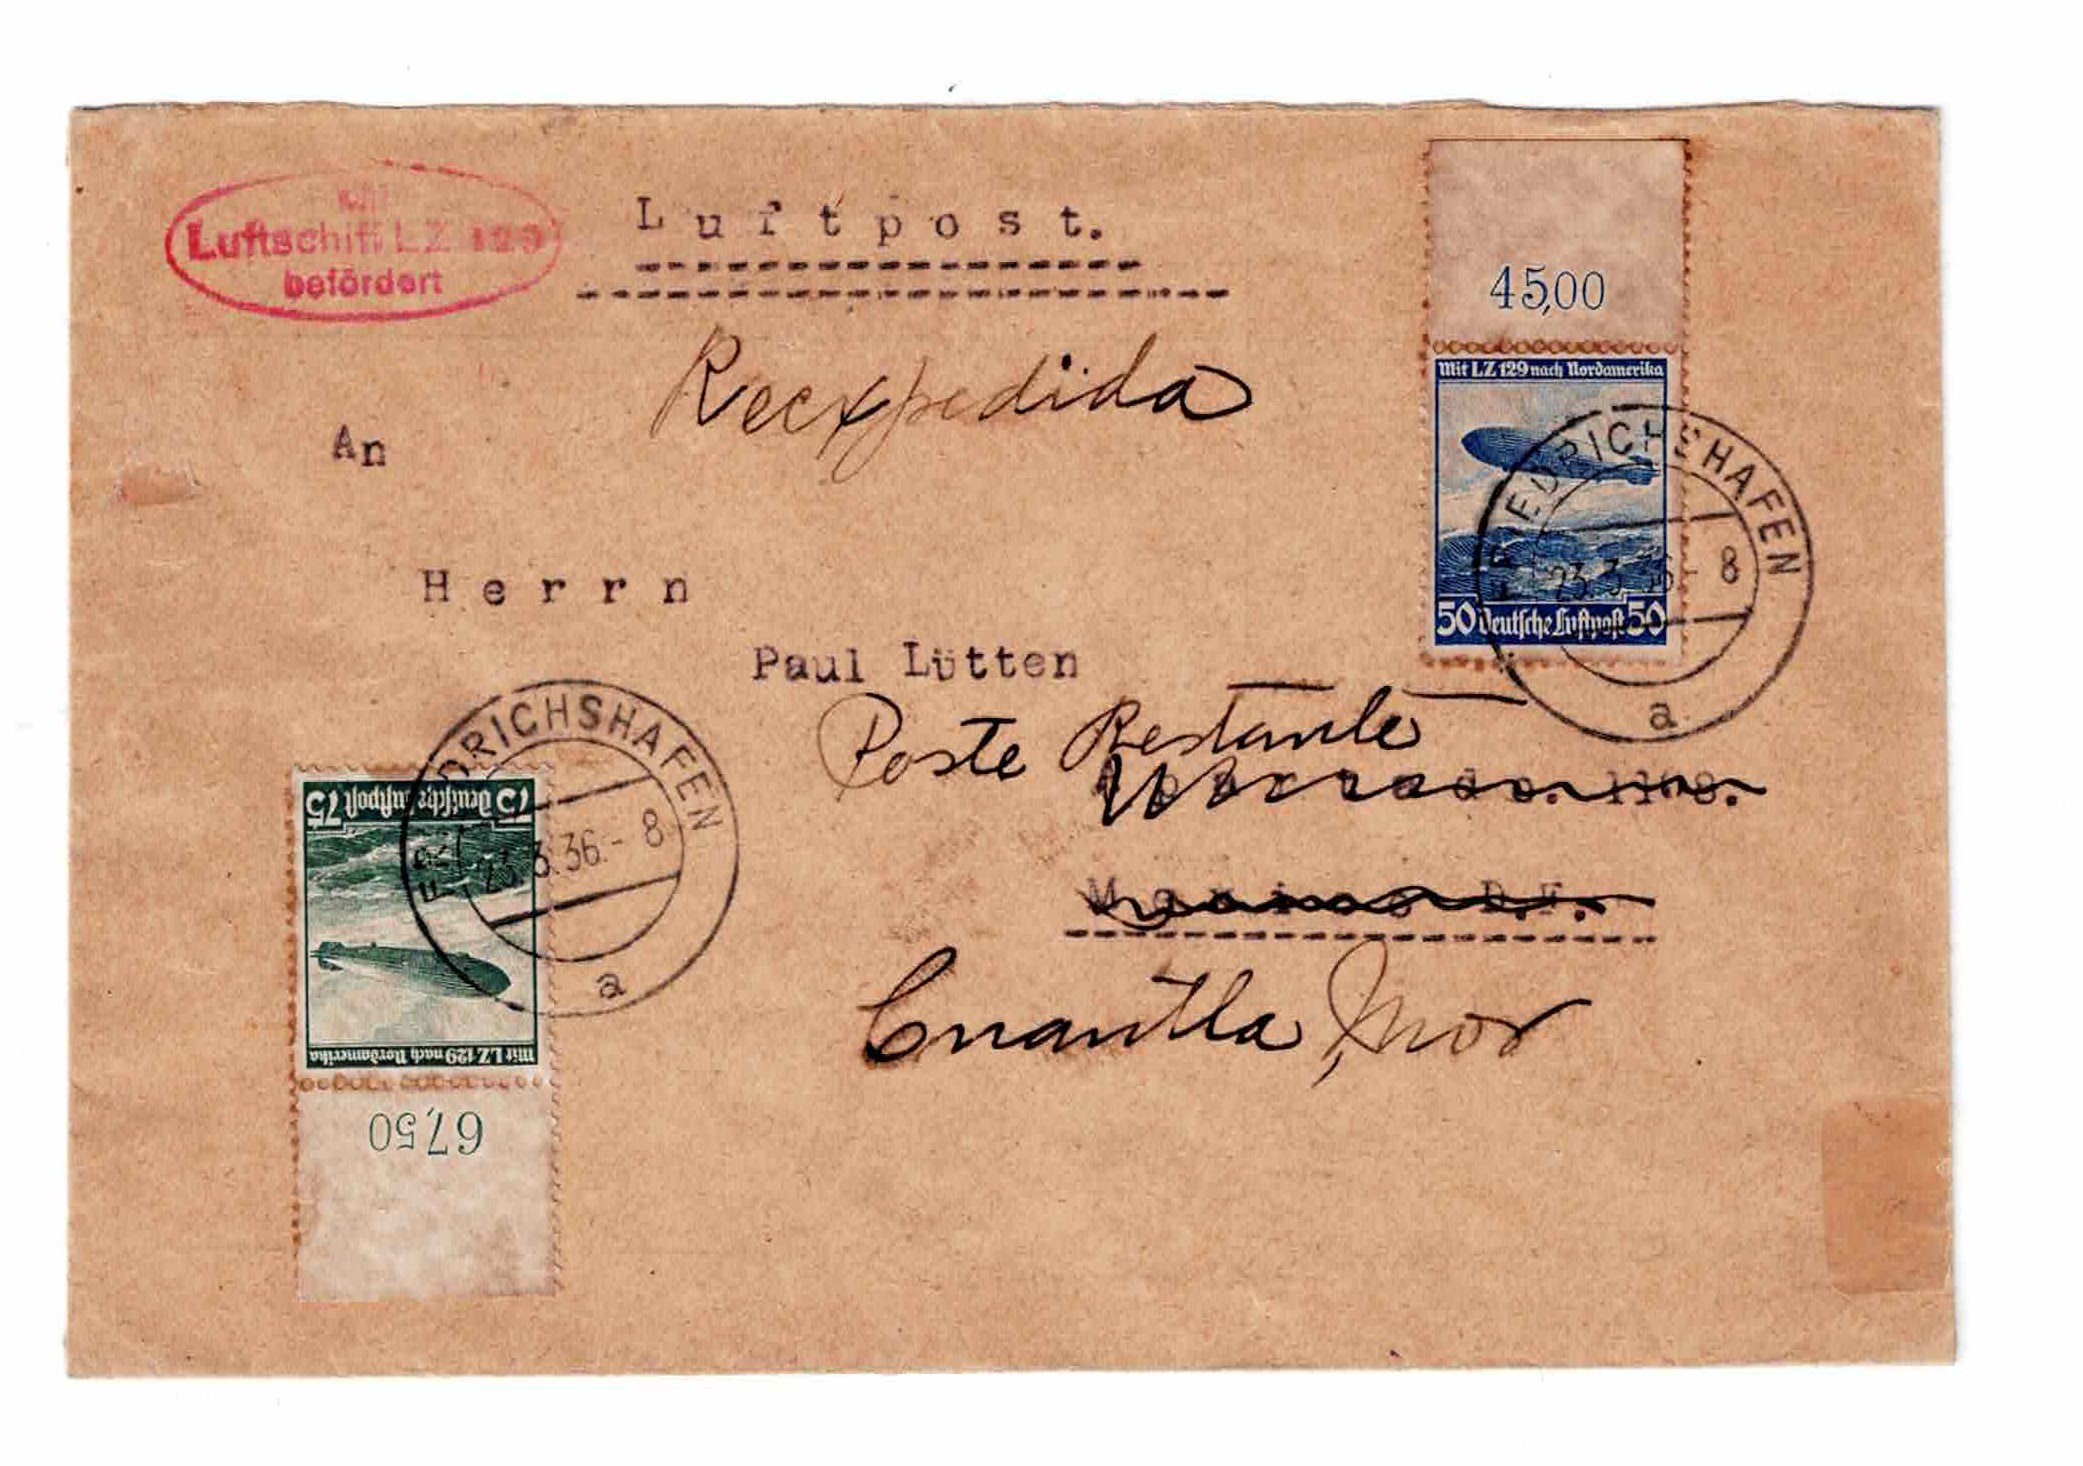 mit
Luftschiff LZ 129
befördert
Luftpost.
Reexpedida
45,00
Mit LZ 129 nach Nordamerika
50 Deutsche Luftpost 50
FRIEDRICHSHAFEN
23.3.36.-8
a
An
Herrn
Paul Lütten
Poste Restante
Apartado. 1168.
Mexico D.F.
Cuautla, Mor
75 Deutsche Luftpost 75
Mit LZ 129 nach Nordamerika
67,50
FRIEDRICHSHAFEN
23.3.36.-8
a